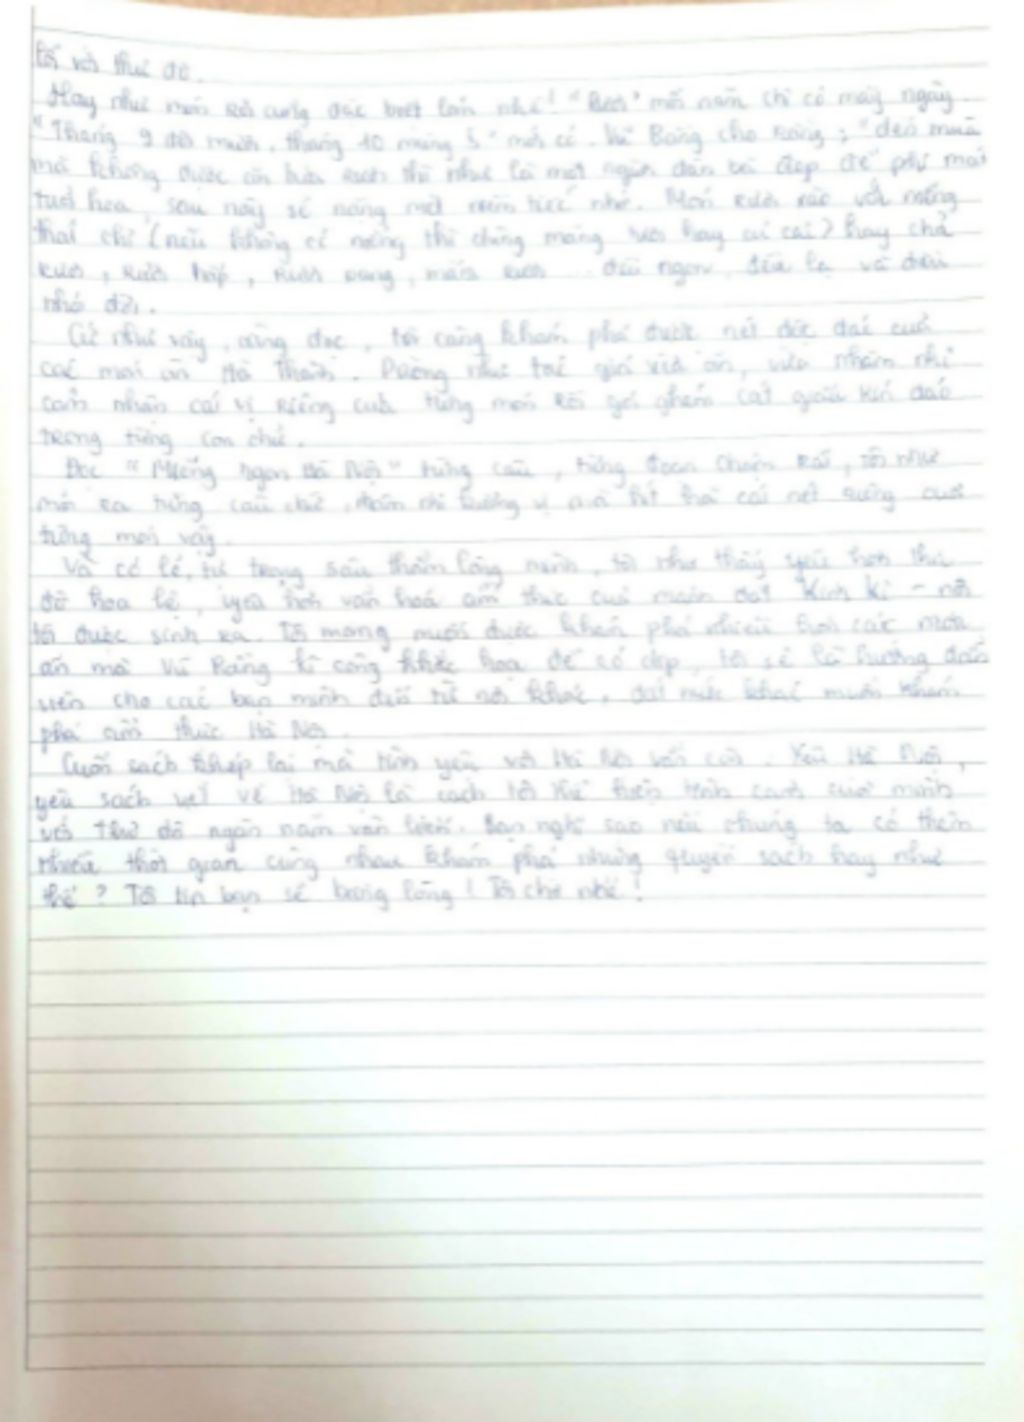 với thủ đô.
Hay như món cũng đặc biệt lắm nhé! "Rươi" mỗi năm chỉ có mấy ngày
"Tháng 9 đôi mươi, tháng 10 mùng 5" mới có. Vũ Bằng cho rằng: "đến mùa
mà không được ăn bữa rươi thì như là một người đàn bà đẹp để phí mất
tuổi hoa, sau này sẽ nặng một niềm tiếc nhớ. Món rươi xào với
thái chỉ (nếu không có thì dùng măng tươi hay củ cải) hay chả
rươi, rươi hấp, rươi rang, mắm rươi ... đều ngon, đều lạ và đều
nhớ đời.
Cứ như vậy, càng đọc, tôi càng khám phá được nét độc đáo của
các món ăn Hà Thành. Dường như tác giả vừa ăn, vừa nhâm nhi
cảm nhận cái vị riêng của từng món rồi gửi gắm kín đáo
trong từng con chữ.
Đọc "Miếng ngon Hà Nội" từng câu, từng đoạn, tôi như
từng câu chữ, hương vị cái nét riêng của
từng món vậy.
Và có lẽ, từ trong sâu thẳm lòng mình, tôi như thấy yêu hơn thủ
đô hoa lệ, yêu hơn văn hoá ẩm thực của mảnh đất Kinh kì - nơi
tôi được sinh ra. Tôi mong muốn được khám phá nhiều hơn các món
ăn mà Vũ Bằng kì công khắc hoạ để có dịp, tôi sẽ là hướng dẫn
viên cho các bạn mình đến từ nơi khác, đất nước khác muốn khám
phá ẩm thực Hà Nội.
Cuốn sách khép lại mà tình yêu với Hà Nội vẫn còn. Yêu Hà Nội,
yêu sách viết về Hà Nội là cách tôi thể hiện tình cảm của mình
với thủ đô ngàn năm văn hiến. Bạn nghĩ sao nếu chúng ta có thêm
nhiều thời gian cùng nhau khám phá những quyển sách hay như
thế? Tôi tin bạn sẽ bằng lòng! Tôi chờ nhé!